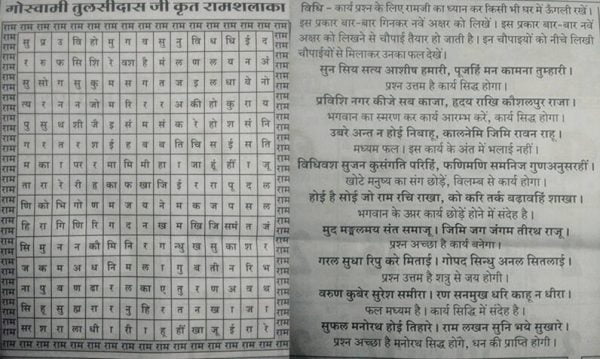 गोस्वामी तुलसीदास जी कृत रामशलाका
राम राम राम राम राम राम राम राम राम राम राम राम राम राम राम राम
सु प्र उ वि हो मु ग ब सु नु वि ध धि इ द
र रु फ सि शि रे वश है मं ल ण ल य न अं
सु सो ग सु कु म स ग त ज इ ल धा ये नो
त्य र न न जो म रि र र अ की हो कु रा य
पु सु थ शी जै इ सं म सं क रे हो श सं नि
ग र त र श ई ह व ब ति चि स ई स ति
म का ा प र र मा मि मी हा ा जा हूं हीं ा जू
ता रा रे री ह का फ खा जि ई र रा पू द ल
णि को भि गो ण म ज य ने म क ज प स ल
हि रा गि णि रि ग द न ख म खि जि स मं त जं
सि मु न न की मि नि र ग न्धु ख सु का श र
ज क म अ ध नि म ल ा गु ब ती न रि भ
ना पु व ण ढा र ल का ए तु र ण अ व थ
सि हु सु ह्म रा र नु हि र त न खा ज ा
सर श रा ला धी ा री ा हू हीं खा जू ई रा रे
राम राम राम राम राम राम राम राम राम राम राम राम राम राम राम राम
विधि - कार्य प्रश्न के लिए रामजी का ध्यान कर किसी भी घर में ऊँगली रखें।
इस प्रकार बार-बार गिनकर नवे अक्षर को लिखें। इस प्रकार बार-बार नवे
अक्षर को लिखने से चौपाई तैयार हो जाती है। इन चौपाइयों को नीचे लिखी
चौपाईयों से मिलाकर उनका फल देखें।
सुन सिय सत्य आशीष हमारी, पूजहिं मन कामना तुम्हारी।
प्रश्न उत्तम है कार्य सिद्ध होगा।
प्रविशि नगर कीजे सब काजा, हृदय राखि कौशलपुर राजा।
भगवान का स्मरण कर कार्य आरम्भ करें, कार्य सिद्ध होगा।
उबरे अन्त न होइ निवाहू, कालनेमि जिमि रावन राहू।
मध्यम फल। इस कार्य के अंत में भलाई नहीं।
विधिवश सुजन कुसंगति परिहिं, फणिमणि समनिज गुणअनुसरहीं।
खोटे मनुष्य का संग छोड़ें, विलम्ब से कार्य होगा।
होई है सोई जो राम रचि राखा, को करि तर्क बढ़ावहिं शाखा।
भगवान के उपर कार्य छोड़ें होने में संदेह है।
मुद मङ्गलमय संत समाजू, जिमि जग जंगम तीरथ राजू।
प्रश्न अच्छा है कार्य बनेगा।
गरल सुधा रिपु करे मिताई। गोपद सिन्धु अनल सितलाई।
प्रश्न उत्तम है शत्रु से जय होगी।
वरुण कुबेर सुरेश समीरा। रण सनमुख धरि काहू न धीरा।
फल मध्यम है। कार्य सिद्धि में संदेह है।
सुफल मनोरथ होई तिहारे। राम लखन सुनि भये सुखारे।
प्रश्न अच्छा है मनोरथ सिद्ध होगे, धन की प्राप्ति होगी।